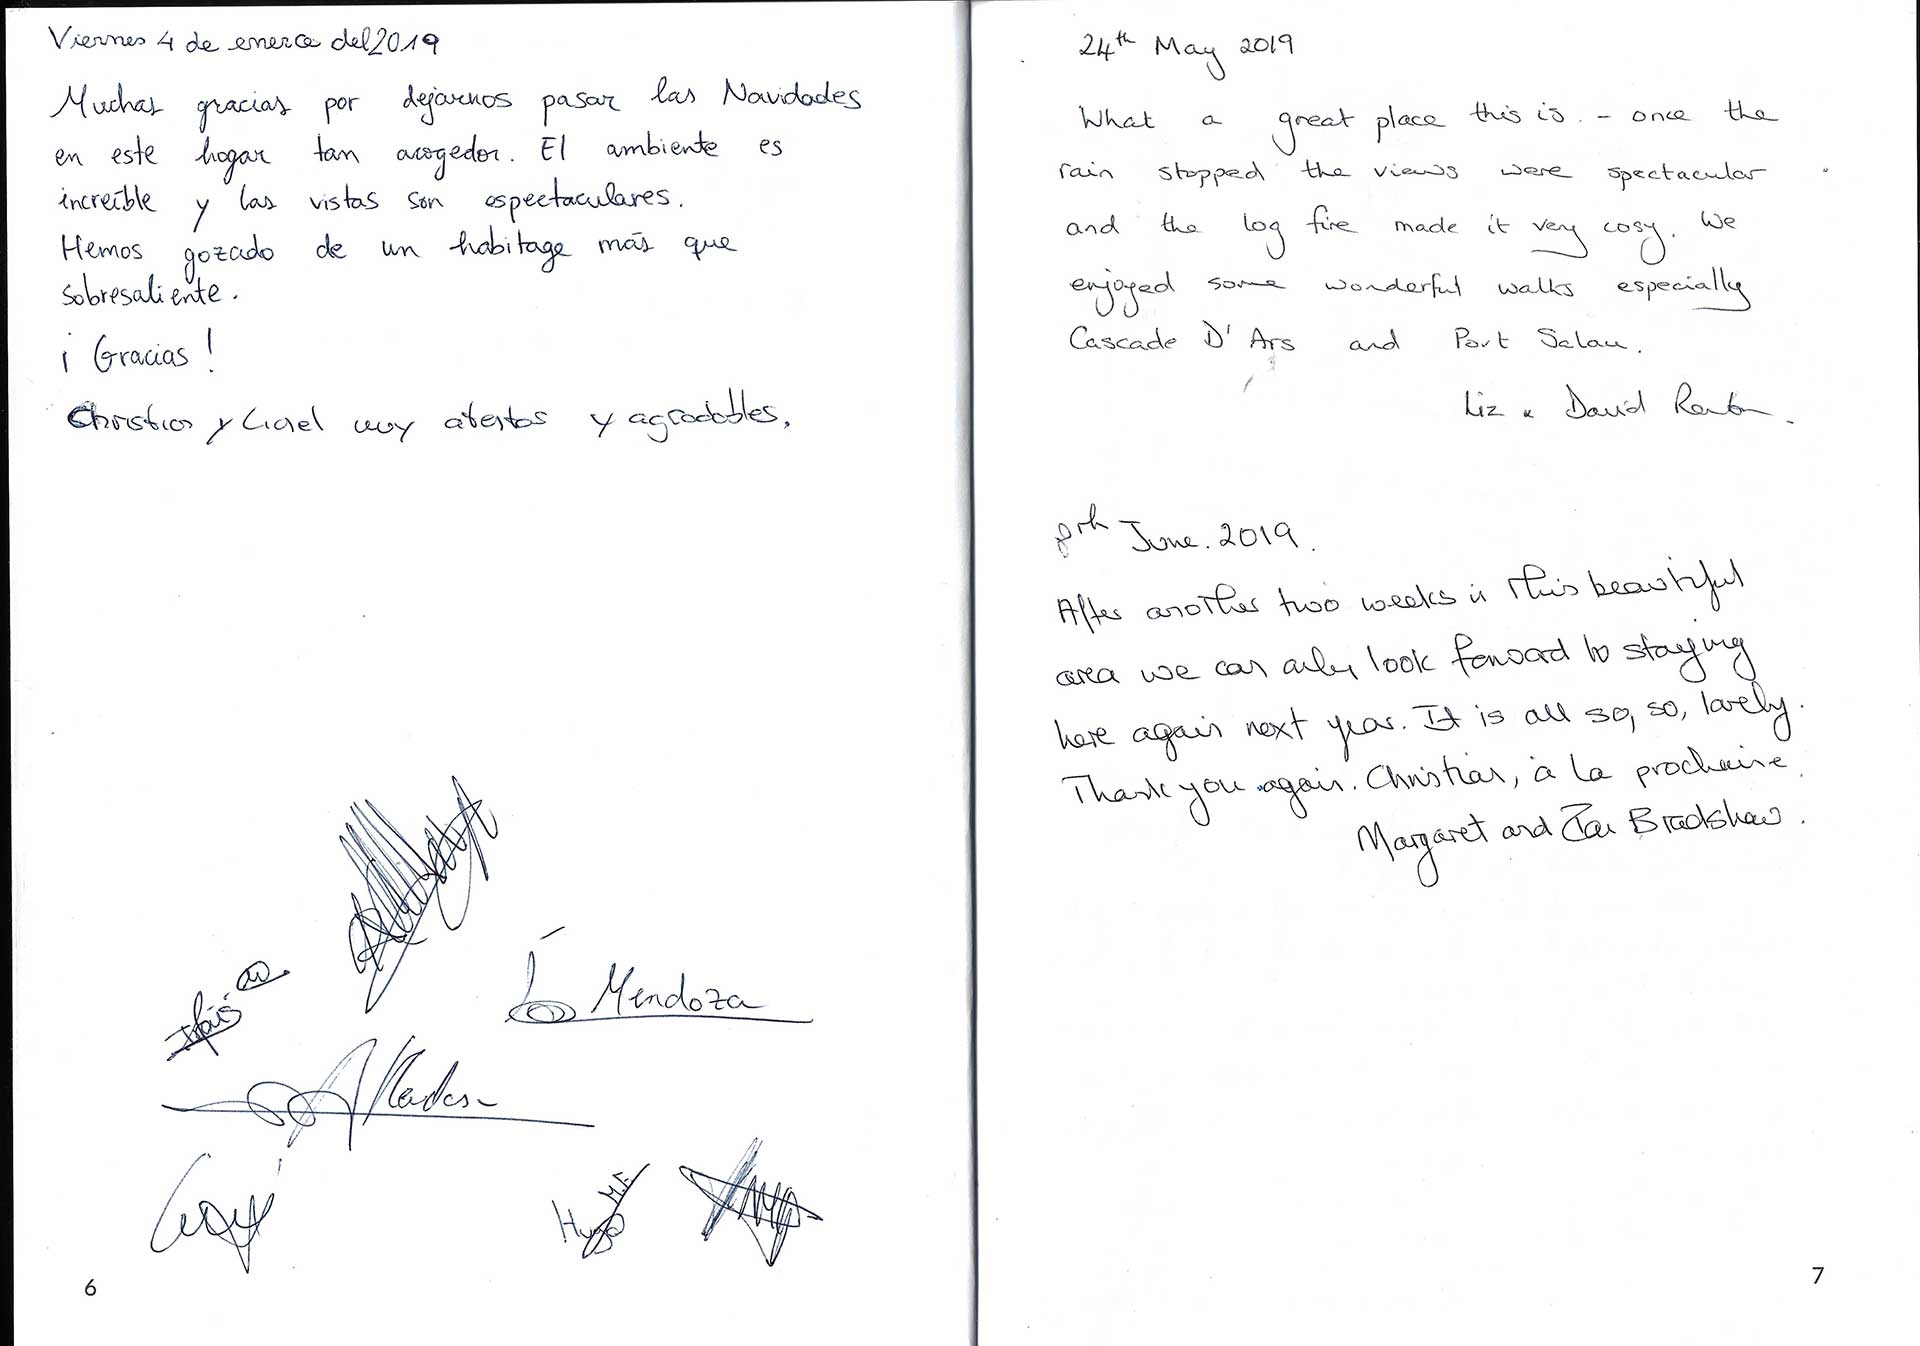 Viernes 4 de enero del 2019
Muchas gracias por dejarnos pasar las Navidades
en este hogar tan acogedor. El ambiente es
increíble y las vistas son espectaculares.
Hemos gozado de un habitage más que
sobresaliente.
¡Gracias!
y muy atentos y agradables.
Mendoza
Hugo M.F.
6
24th May 2019
What a great place this is. - once the
rain stopped the views were spectacular
and the log fire made it very cosy. We
enjoyed some wonderful walks especially
Cascade D'Ars and Port Salau.
Liz & David
June. 2019.
After another two weeks in this beautiful
area we can only look forward to staying
here again next year. It is all so, so, lovely.
Thank you again. Christian, à la prochaine.
Margaret and Bradshaw.
7